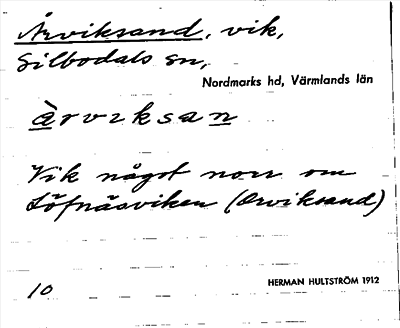 Årviksand, vik,
Silbodals sn,
Nordmarks hd, Värmlands län
àrviksan
Vik något norr om
Löfnäsviken (Orviksand)
10
HERMAN HULTSTRÖM 1912